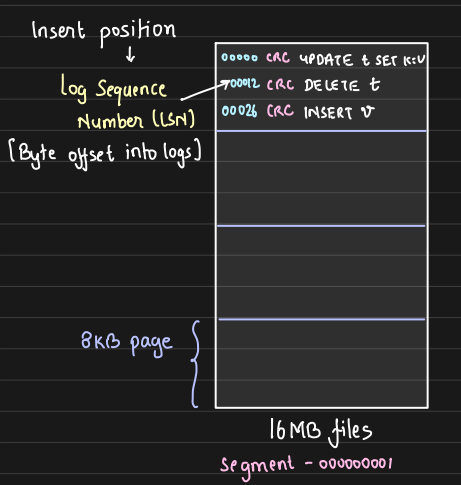 Insert position
log Sequence
Number (LSN)
[Byte offset into logs]
00000 CRC UPDATE t SET K:V
00012 CRC DELETE t
00026 CRC INSERT V
8KB page
16MB files
Segment - 000000001